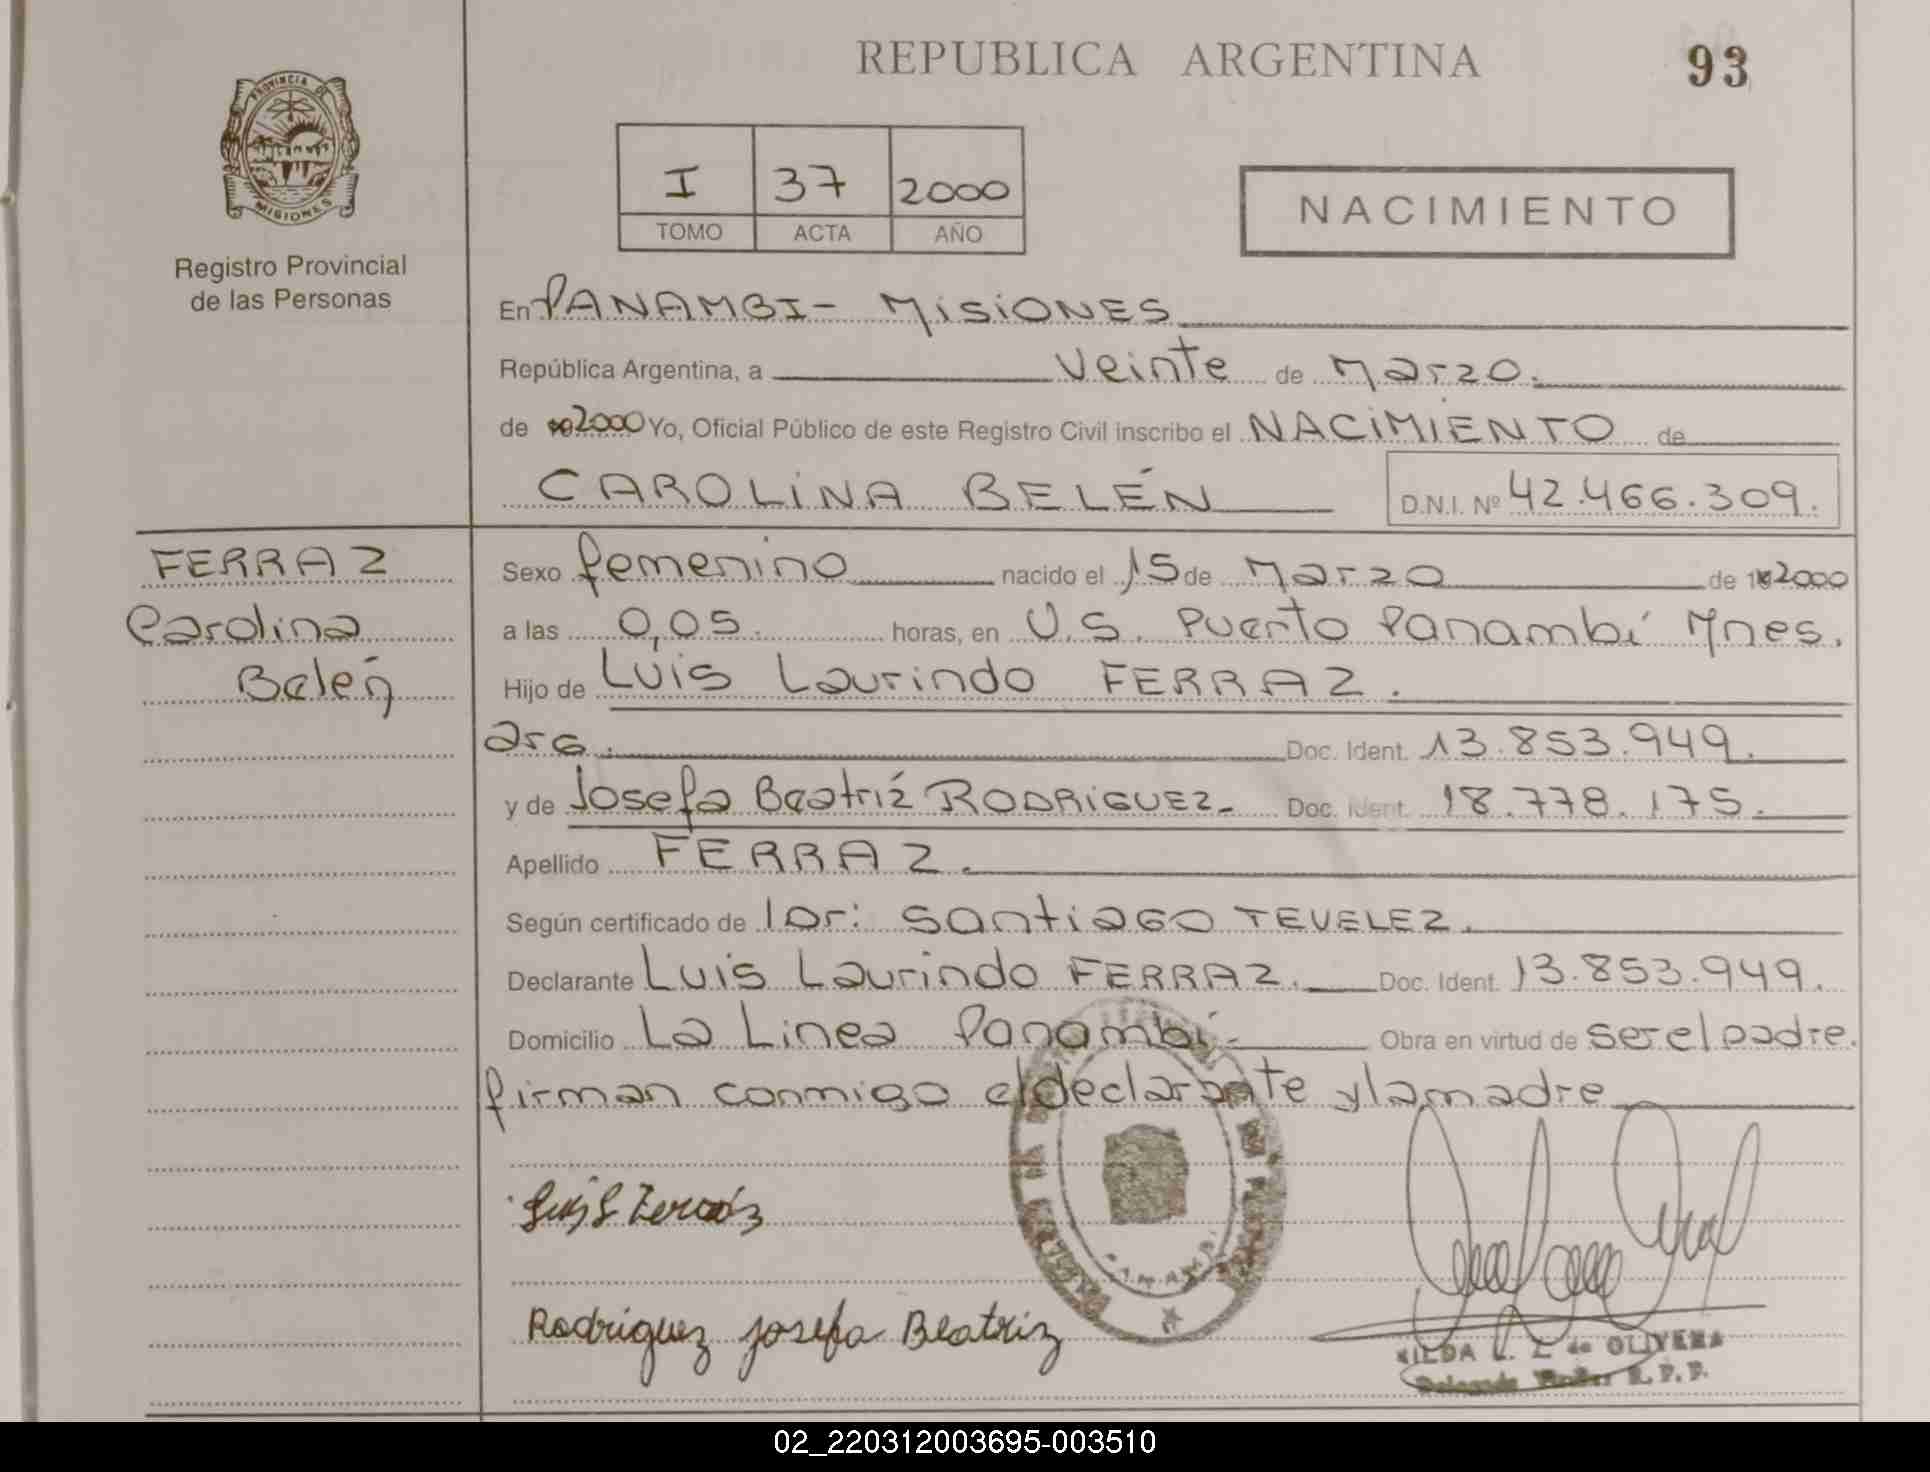 REPUBLICA ARGENTINA
93
PROVINCIA DE
MISIONES
Registro Provincial
de las Personas
I 37 2000
TOMO ACTA AÑO
NACIMIENTO
En PANAMBI - MISIONES
República Argentina, a veinte de Marzo.
de 2000 Yo, Oficial Público de este Registro Civil inscribo el NACIMIENTO de
CAROLINA BELÉN D.N.I. Nº 42.466.309.
FERRAZ
Carolina
Belén
Sexo femenino nacido el 15 de Marzo de 2000
a las 0,05. horas, en U.S. Puerto Panambí Mnes.
Hijo de Luis Laurindo FERRAZ.
arg. Doc. Ident. 13.853.949.
y de Josefa Beatríz RODRIGUEZ- Doc. Ident. 18.778.175.
Apellido FERRAZ.
Según certificado de Santiago TEVELEZ.
Declarante Luis Laurindo FERRAZ. Doc. Ident. 13.853.949.
Domicilio La Linea Panambí- Obra en virtud de ser el padre.
firman conmigo el declarante y la madre
Rodriguez Josefa Beatriz
PANAMBI
de OLIVERA
R.P.P.
02_220312003695-003510